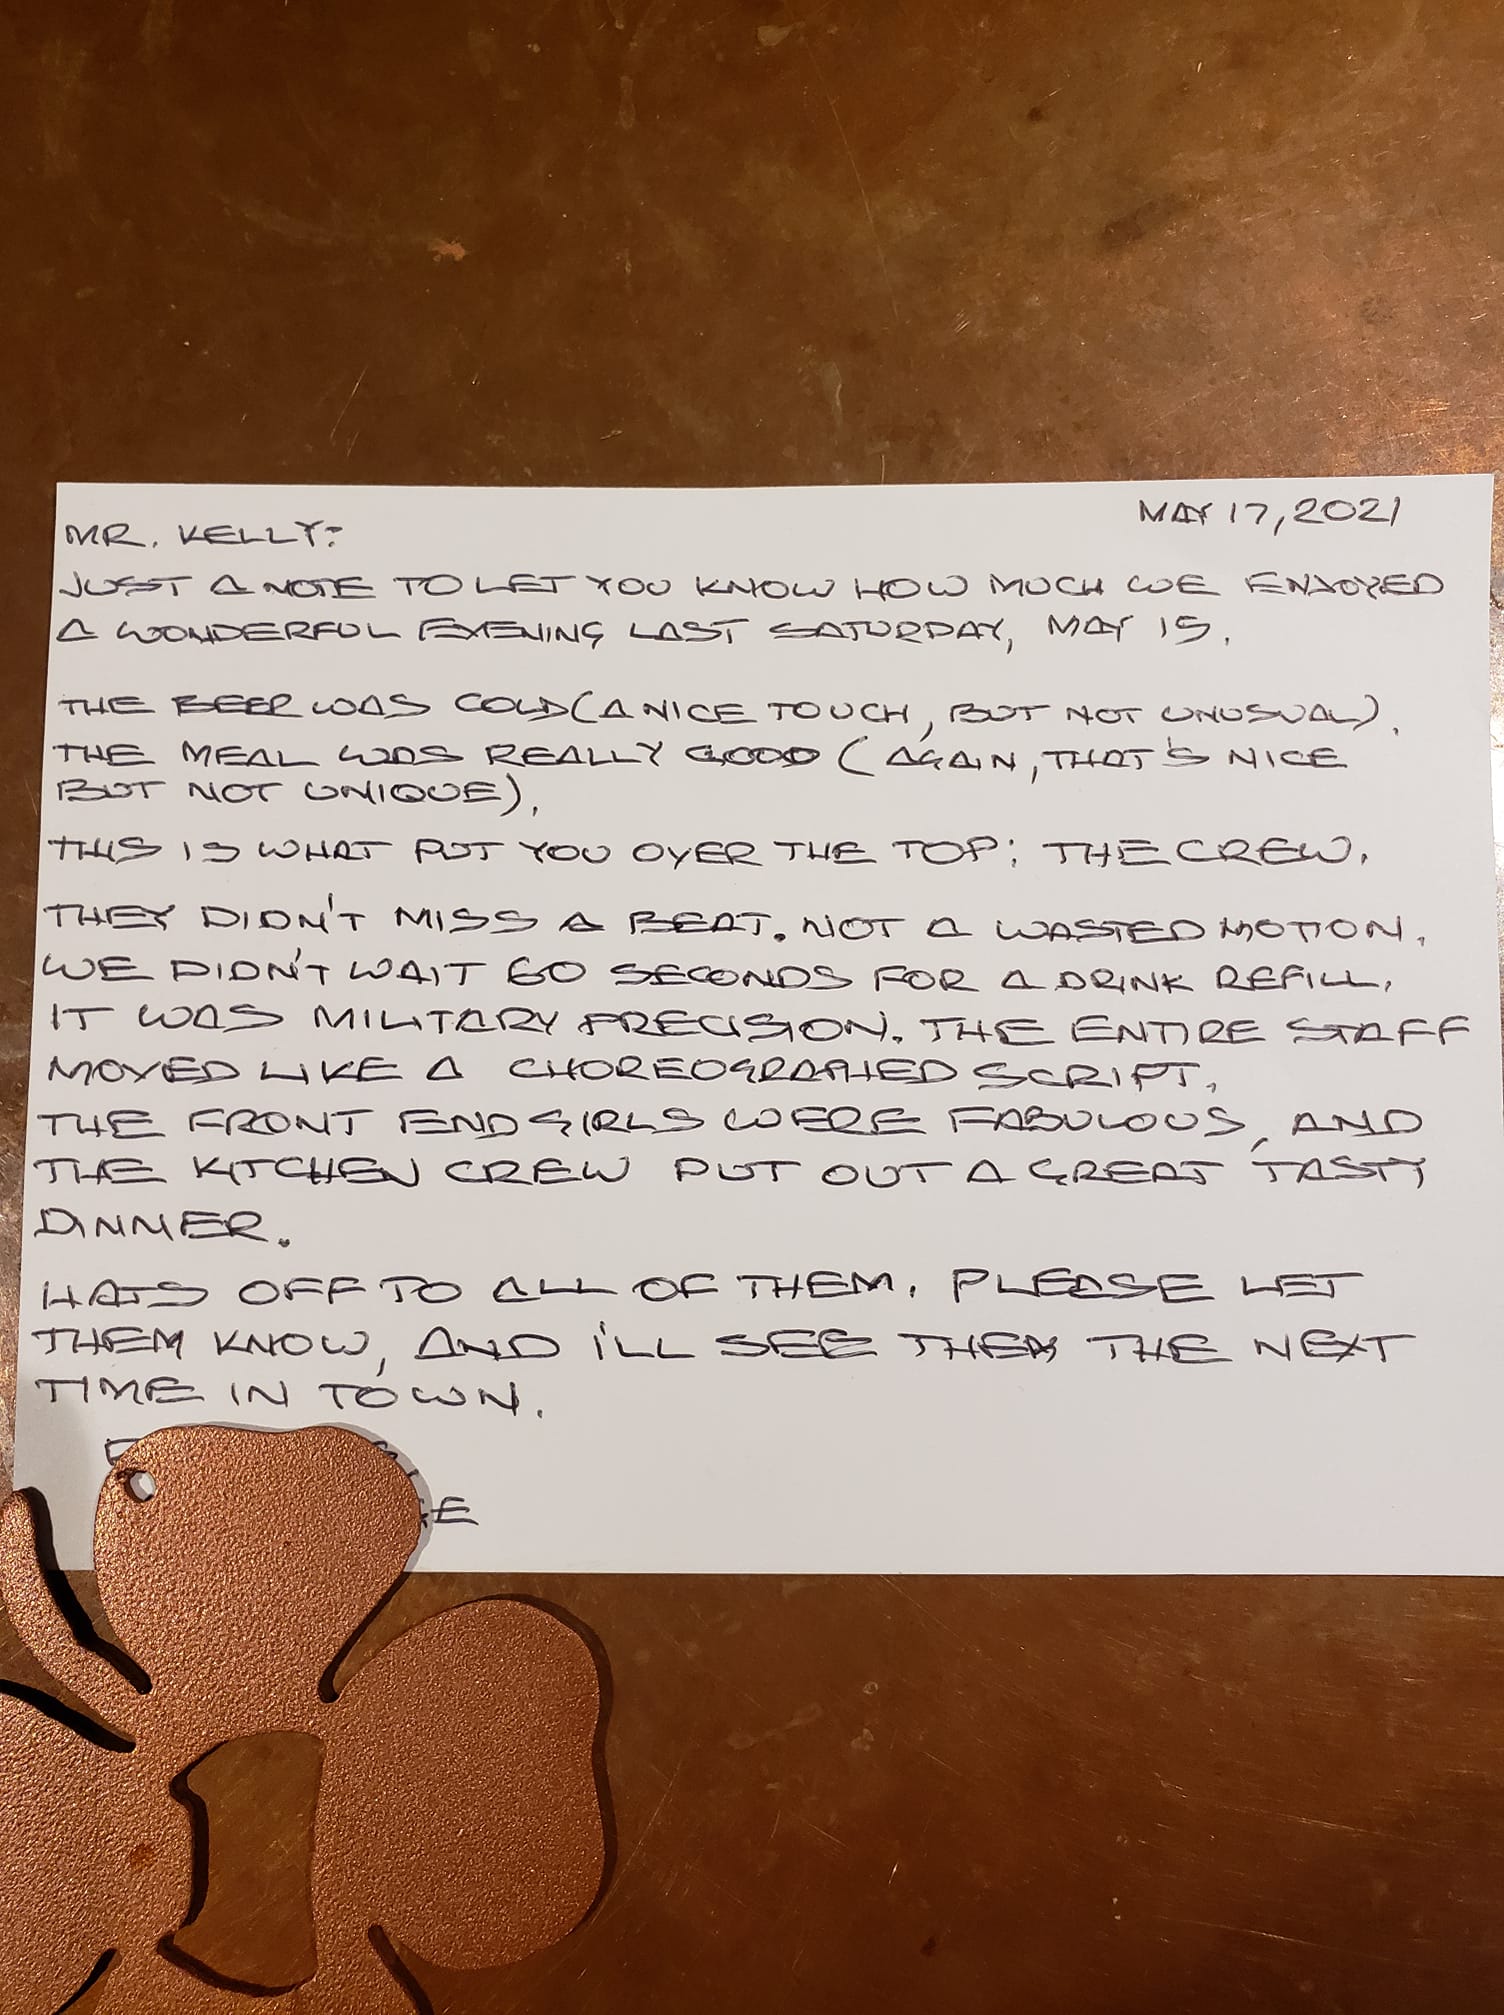 MAY 17, 2021
MR. KELLY:
JUST A NOTE TO LET YOU KNOW HOW MUCH WE ENJOYED
A WONDERFUL EVENING LAST SATURDAY, MAY 15.
THE BEER WAS COLD (A NICE TOUCH, BUT NOT UNUSUAL).
THE MEAL WAS REALLY GOOD (AGAIN, THAT'S NICE
BUT NOT UNIQUE).
THIS IS WHAT PUT YOU OVER THE TOP: THE CREW.
THEY DIDN'T MISS A BEAT. NOT A WASTED MOTION.
WE DIDN'T WAIT 60 SECONDS FOR A DRINK REFILL.
IT WAS MILITARY PRECISION. THE ENTIRE STAFF
MOVED LIKE A CHOREOGRAPHED SCRIPT.
THE FRONT END GIRLS WERE FABULOUS, AND
THE KITCHEN CREW PUT OUT A GREAT TASTY
DINNER.
HATS OFF TO ALL OF THEM. PLEASE LET
THEM KNOW, AND I'LL SEE THEM THE NEXT
TIME IN TOWN.